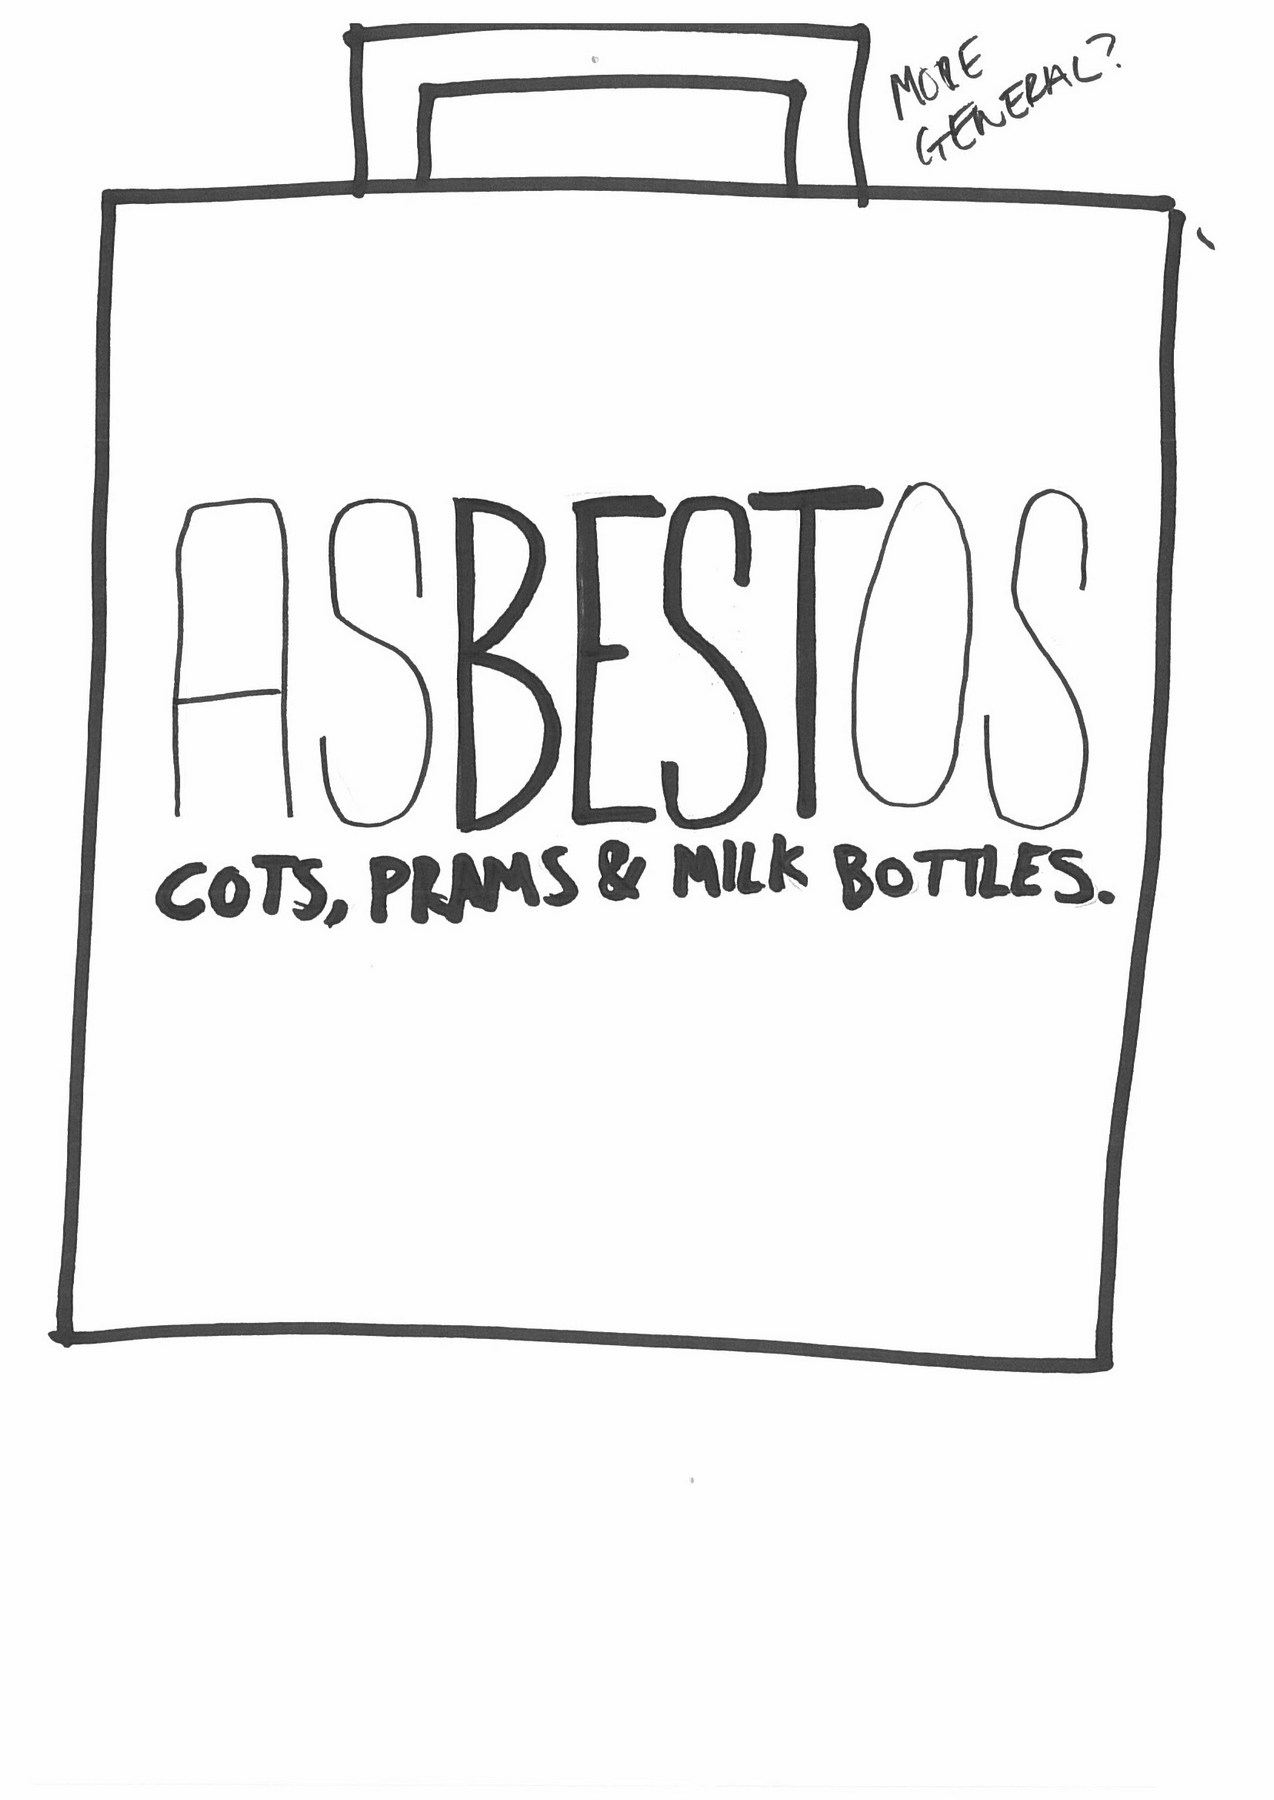 MORE
GENERAL?
ASBESTOS
COTS, PRAMS & MILK BOTTLES.